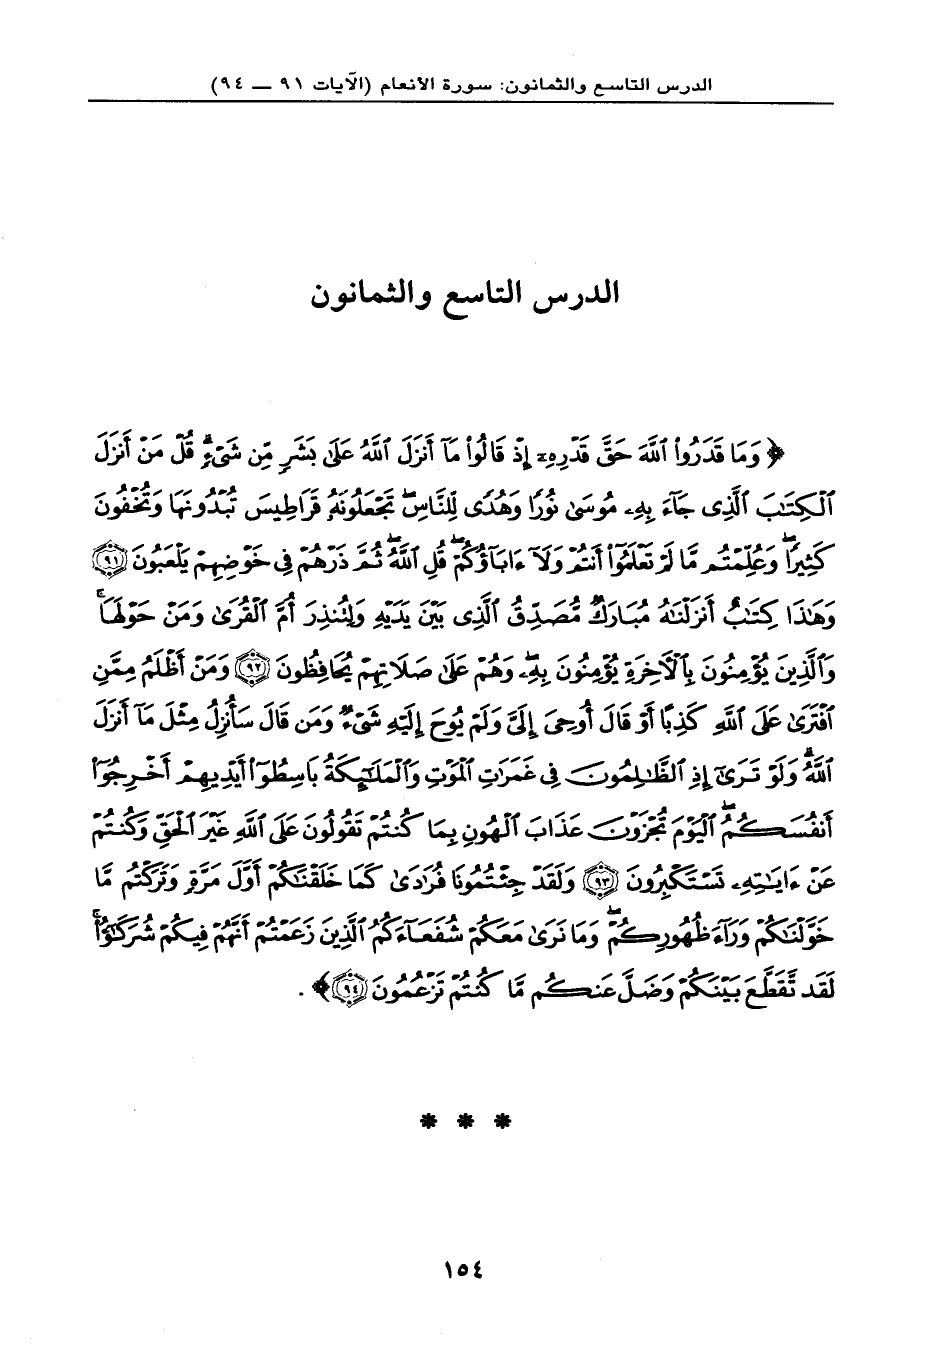 الدرس التاسع والثمانون: سورة الأنعام (الآيات ٩١ — ٩٤)
الدرس التاسع والثمانون
﴿ وَمَا قَدَرُوا۟ ٱللَّهَ حَقَّ قَدْرِهِۦٓ إِذْ قَالُوا۟ مَآ أَنزَلَ ٱللَّهُ عَلَىٰ بَشَرٍ مِّن شَىْءٍ ۗ قُلْ مَنْ أَنزَلَ
ٱلْكِتَٰبَ ٱلَّذِى جَآءَ بِهِۦ مُوسَىٰ نُورًا وَهُدًى لِّلنَّاسِ ۖ تَجْعَلُونَهُۥ قَرَاطِيسَ تُبْدُونَهَا وَتُخْفُونَ
كَثِيرًا ۖ وَعُلِّمْتُم مَّا لَمْ تَعْلَمُوٓا۟ أَنتُمْ وَلَآ ءَابَآؤُكُمْ ۖ قُلِ ٱللَّهُ ۖ ثُمَّ ذَرْهُمْ فِى خَوْضِهِمْ يَلْعَبُونَ ۝٩١
وَهَٰذَا كِتَٰبٌ أَنزَلْنَٰهُ مُبَارَكٌ مُّصَدِّقُ ٱلَّذِى بَيْنَ يَدَيْهِ وَلِتُنذِرَ أُمَّ ٱلْقُرَىٰ وَمَنْ حَوْلَهَا ۚ
وَٱلَّذِينَ يُؤْمِنُونَ بِٱلْأَخِرَةِ يُؤْمِنُونَ بِهِۦ ۖ وَهُمْ عَلَىٰ صَلَاتِهِمْ يُحَافِظُونَ ۝٩٢ وَمَنْ أَظْلَمُ مِمَّنِ
ٱفْتَرَىٰ عَلَى ٱللَّهِ كَذِبًا أَوْ قَالَ أُوحِىَ إِلَىَّ وَلَمْ يُوحَ إِلَيْهِ شَىْءٌ وَمَن قَالَ سَأُنزِلُ مِثْلَ مَآ أَنزَلَ
ٱللَّهُ ۗ وَلَوْ تَرَىٰٓ إِذِ ٱلظَّٰلِمُونَ فِى غَمَرَٰتِ ٱلْمَوْتِ وَٱلْمَلَٰٓئِكَةُ بَاسِطُوٓا۟ أَيْدِيهِمْ أَخْرِجُوٓا۟
أَنفُسَكُمُ ۖ ٱلْيَوْمَ تُجْزَوْنَ عَذَابَ ٱلْهُونِ بِمَا كُنتُمْ تَقُولُونَ عَلَى ٱللَّهِ غَيْرَ ٱلْحَقِّ وَكُنتُمْ
عَنْ ءَايَٰتِهِۦ تَسْتَكْبِرُونَ ۝٩٣ وَلَقَدْ جِئْتُمُونَا فُرَٰدَىٰ كَمَا خَلَقْنَٰكُمْ أَوَّلَ مَرَّةٍ وَتَرَكْتُم مَّا
خَوَّلْنَٰكُمْ وَرَآءَ ظُهُورِكُمْ ۖ وَمَا نَرَىٰ مَعَكُمْ شُفَعَآءَكُمُ ٱلَّذِينَ زَعَمْتُمْ أَنَّهُمْ فِيكُمْ شُرَكَٰٓؤُا۟ ۚ
لَقَد تَّقَطَّعَ بَيْنَكُمْ وَضَلَّ عَنكُم مَّا كُنتُمْ تَزْعُمُونَ ۝٩٤ ﴾ .
* * *
١٥٤